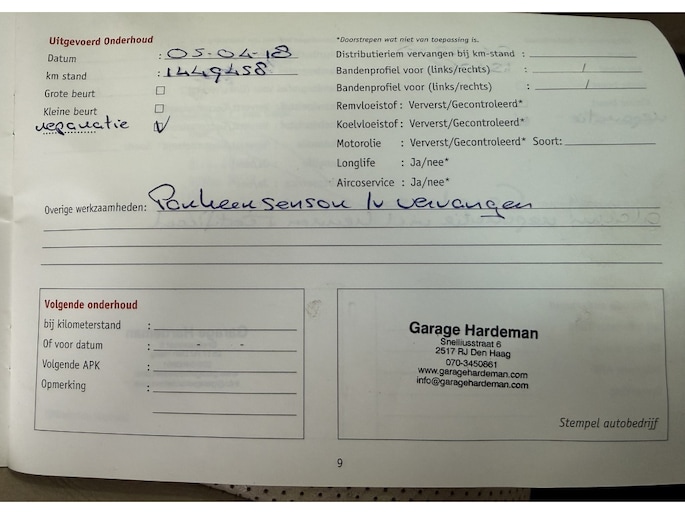 Uitgevoerd Onderhoud
Datum : 05-04-18
km stand : 1449458
Grote beurt
Kleine beurt
reparatie
*Doorstrepen wat niet van toepassing is.
Distributieriem vervangen bij km-stand :
Bandenprofiel voor (links/rechts) : /
Bandenprofiel voor (links/rechts) : /
Remvloeistof : Ververst/Gecontroleerd*
Koelvloeistof : Ververst/Gecontroleerd*
Motorolie : Ververst/Gecontroleerd* Soort:
Longlife : Ja/nee*
Aircoservice : Ja/nee*
Overige werkzaamheden: Parkeersensor lv vervangen
Volgende onderhoud
bij kilometerstand :
Of voor datum : - -
Volgende APK :
Opmerking :
Garage Hardeman
Snelliusstraat 6
2517 RJ Den Haag
070-3450861
www.garagehardeman.com
info@garagehardeman.com
Stempel autobedrijf
9